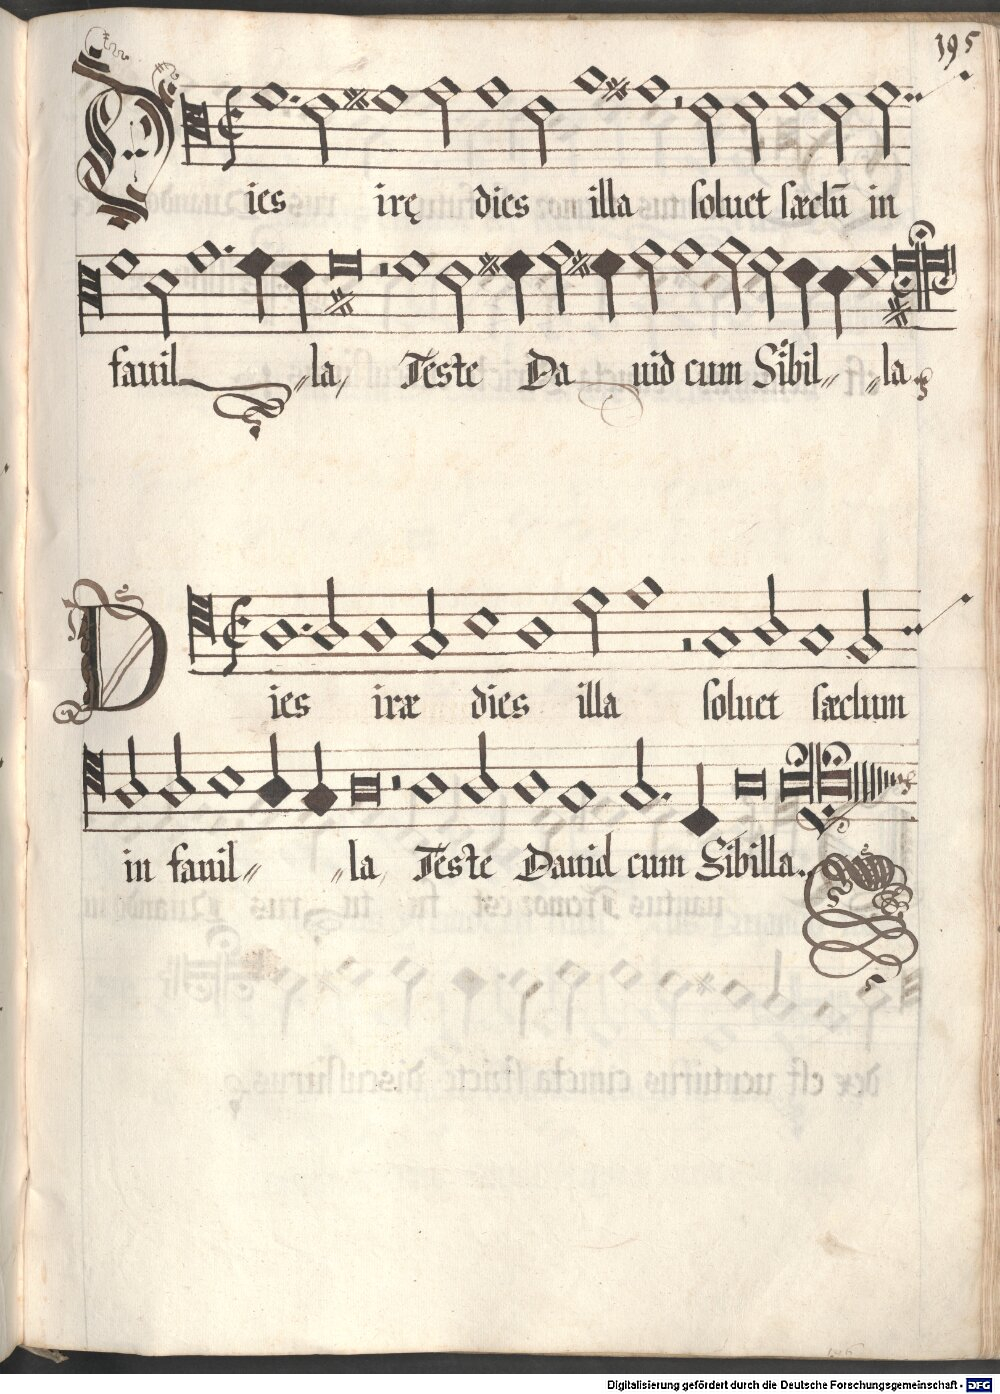 195
Dies irę dies illa soluet sæclū in
fauil la, Teste Da uid cum Sibil la.
Dies iræ dies illa soluet sæclum
in fauil la, Teste Dauid cum Sibilla.
Digitalisierung gefördert durch die Deutsche Forschungsgemeinschaft - DFG